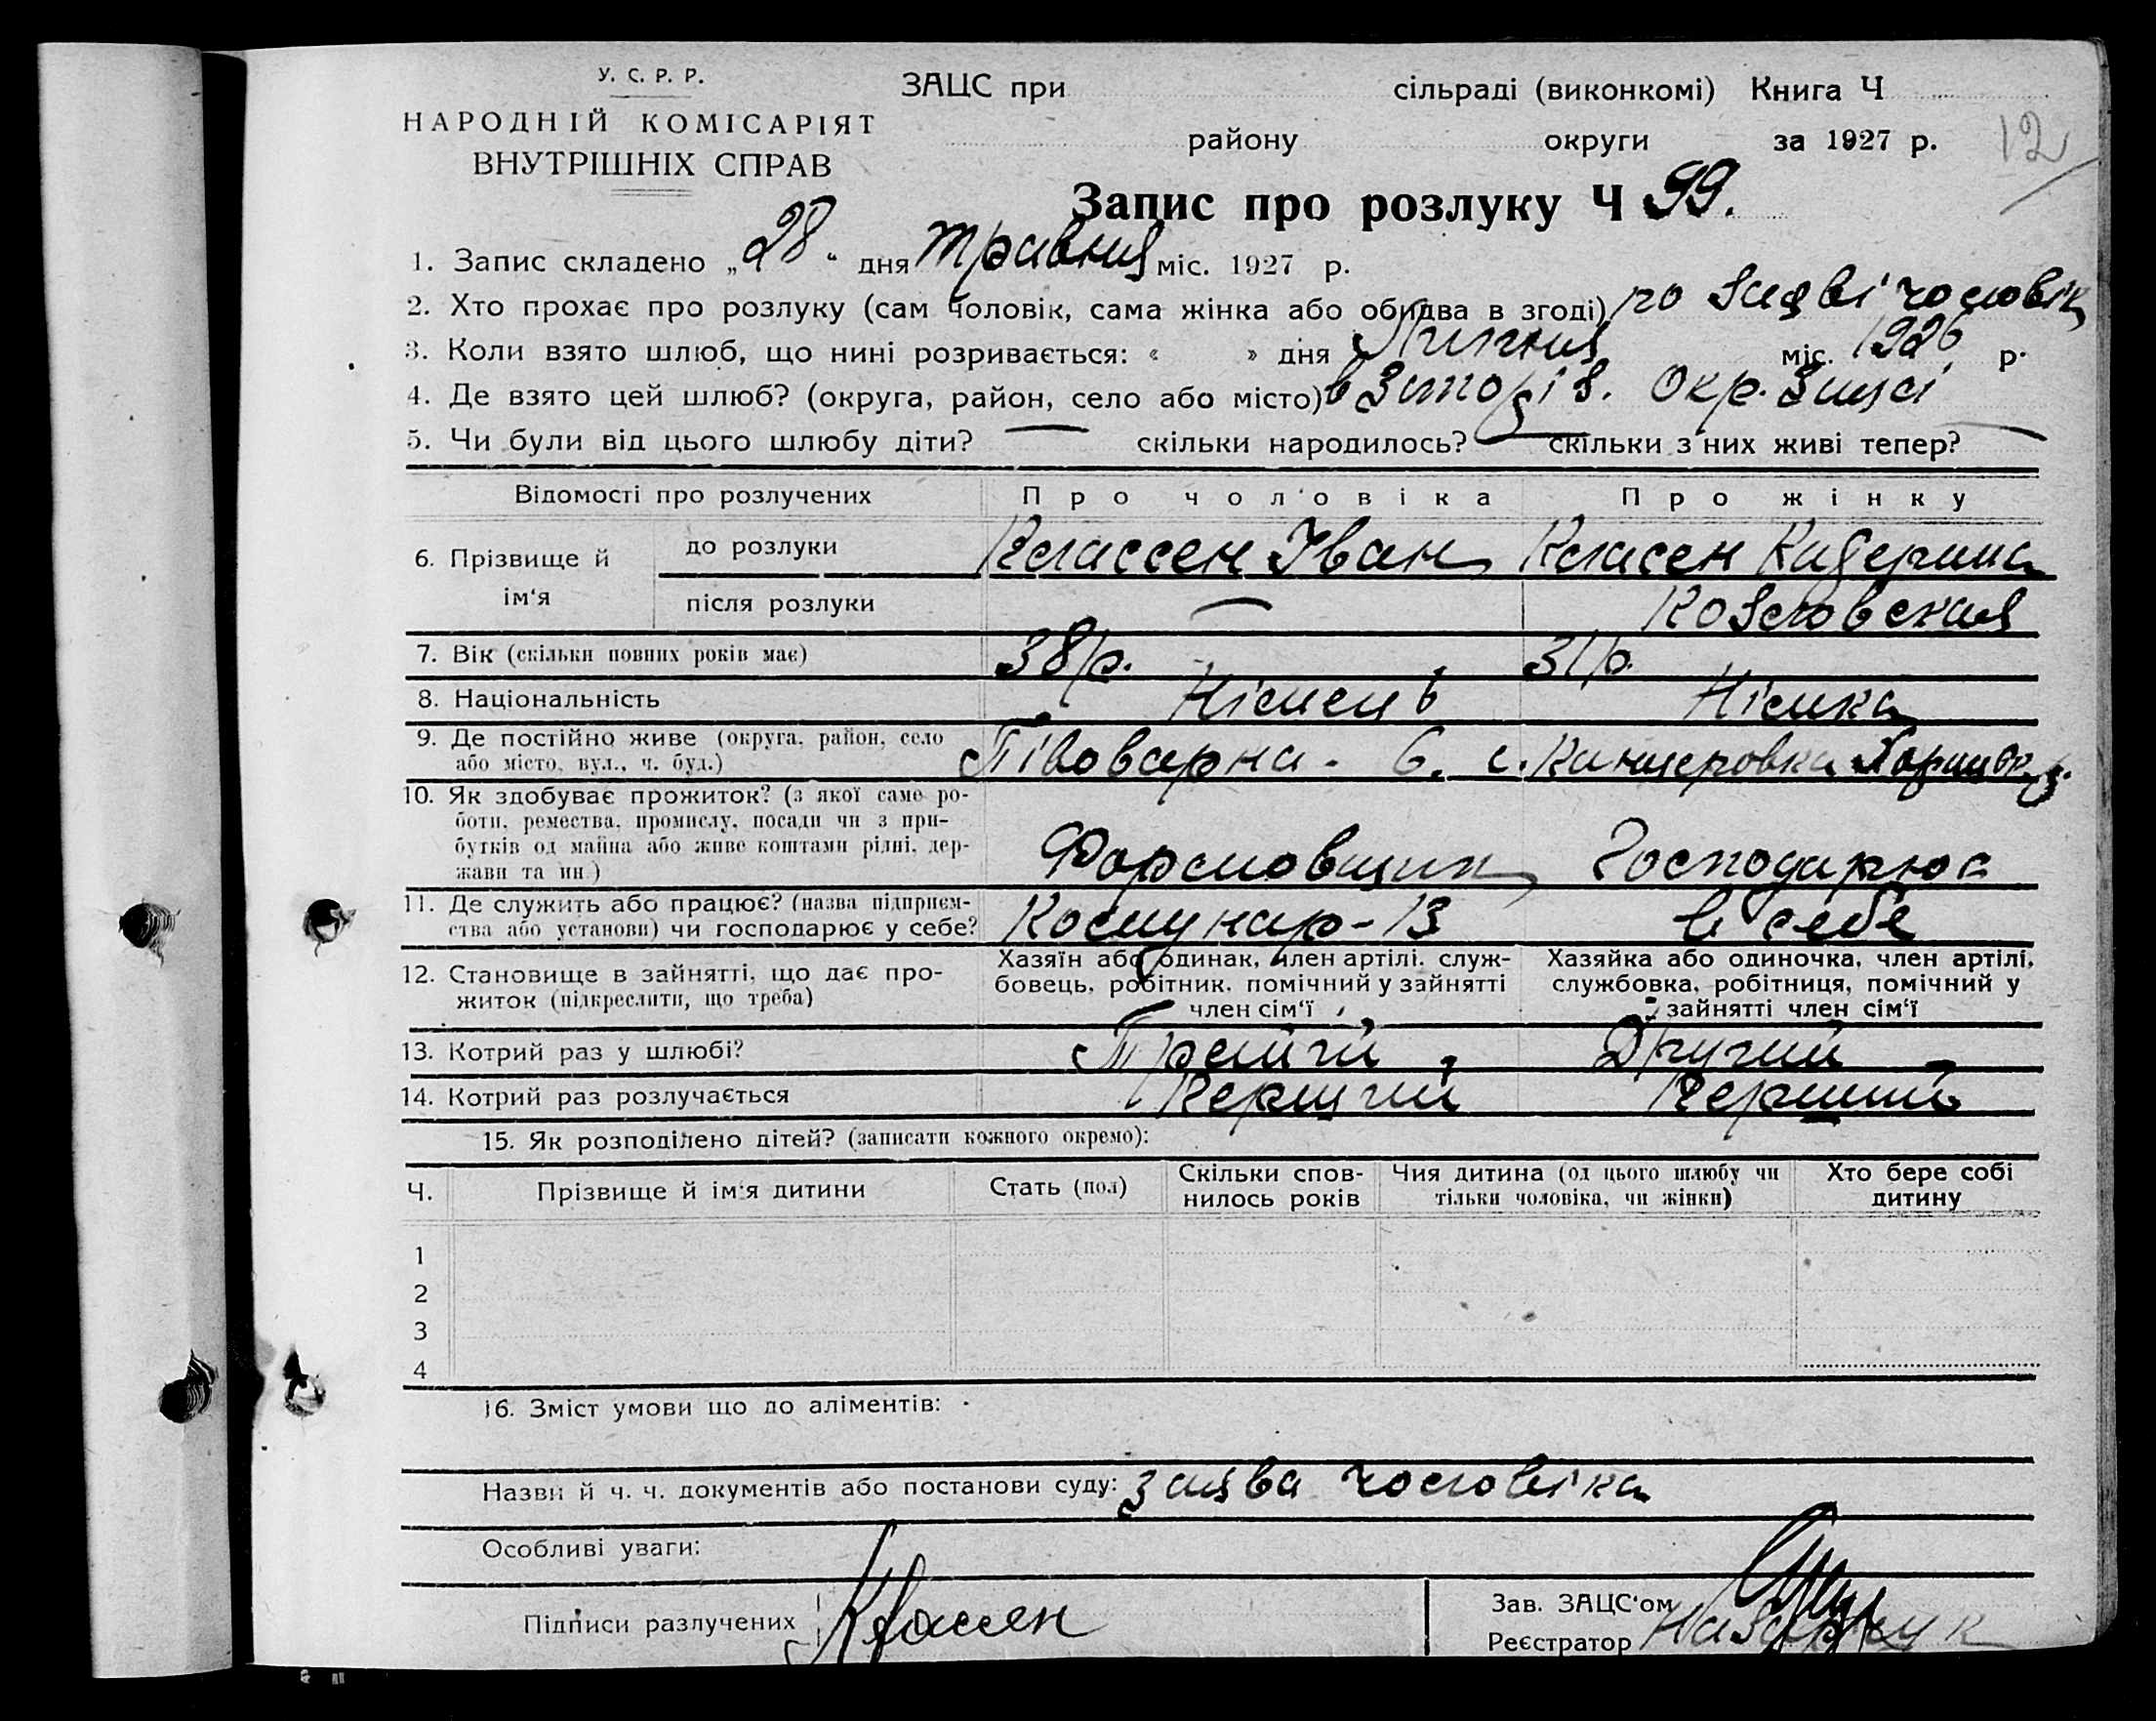 У. С. Р. Р.
НАРОДНІЙ КОМІСАРІЯТ
ВНУТРІШНІХ СПРАВ
ЗАЦС при сільраді (виконкомі) Книга Ч
району округи за 1927 р.
12
Запис про розлуку Ч 99.
1. Запис складено „28“ дня травня міс. 1927 р.
2. Хто прохає про розлуку (сам чоловік, сама жінка або обидва в згоді) по заяві чоловік
3. Коли взято шлюб, що нині розривається: « » дня Липня міс. 1926 р.
4. Де взято цей шлюб? (округа, район, село або місто) в Окр. Зацсі
5. Чи були від цього шлюбу діти? — скільки народилось? — скільки з них живі тепер? —
Відомості про розлучених Про чоловіка Про жінку
6. Прізвище й ім'я до розлуки Классен Іван Класен Катерина
після розлуки — Козловская
7. Вік (скільки повних років має) 38 р. 31 р.
8. Національність Німець Німка
9. Де постійно живе (округа, район, село або місто, вул., ч. буд.) Півоварна. 6. с. Канцеровка
10. Як здобуває прожиток? (з якої саме роботи, ремества, промислу, посади чи з прибутків од майна або живе коштами рідні, держави та ин.) Формовщик Господарює
11. Де служить або працює? (назва підприємства або установи) чи господарює у себе? Комунар-13 в себе
12. Становище в зайнятті, що дає прожиток (підкреслити, що треба)
Хазяїн або одинак, член артілі, службовець, робітник, помічний у зайнятті член сім'ї
Хазяйка або одиночка, член артілі, службовка, робітниця, помічний у зайнятті член сім'ї
13. Котрий раз у шлюбі? Третій Другий
14. Котрий раз розлучається Перший Перший
15. Як розподілено дітей? (записати кожного окремо):
Ч. Прізвище й ім'я дитини Стать (пол) Скільки сповнилось років Чия дитина (од цього шлюбу чи тільки чоловіка, чи жінки) Хто бере собі дитину
1
2
3
4
16. Зміст умови що до аліментів:
Назви й ч. ч. документів або постанови суду: заява чоловіка
Особливі уваги:
Підписи разлучених Классен
Зав. ЗАЦС'ом
Реєстратор Назарчук